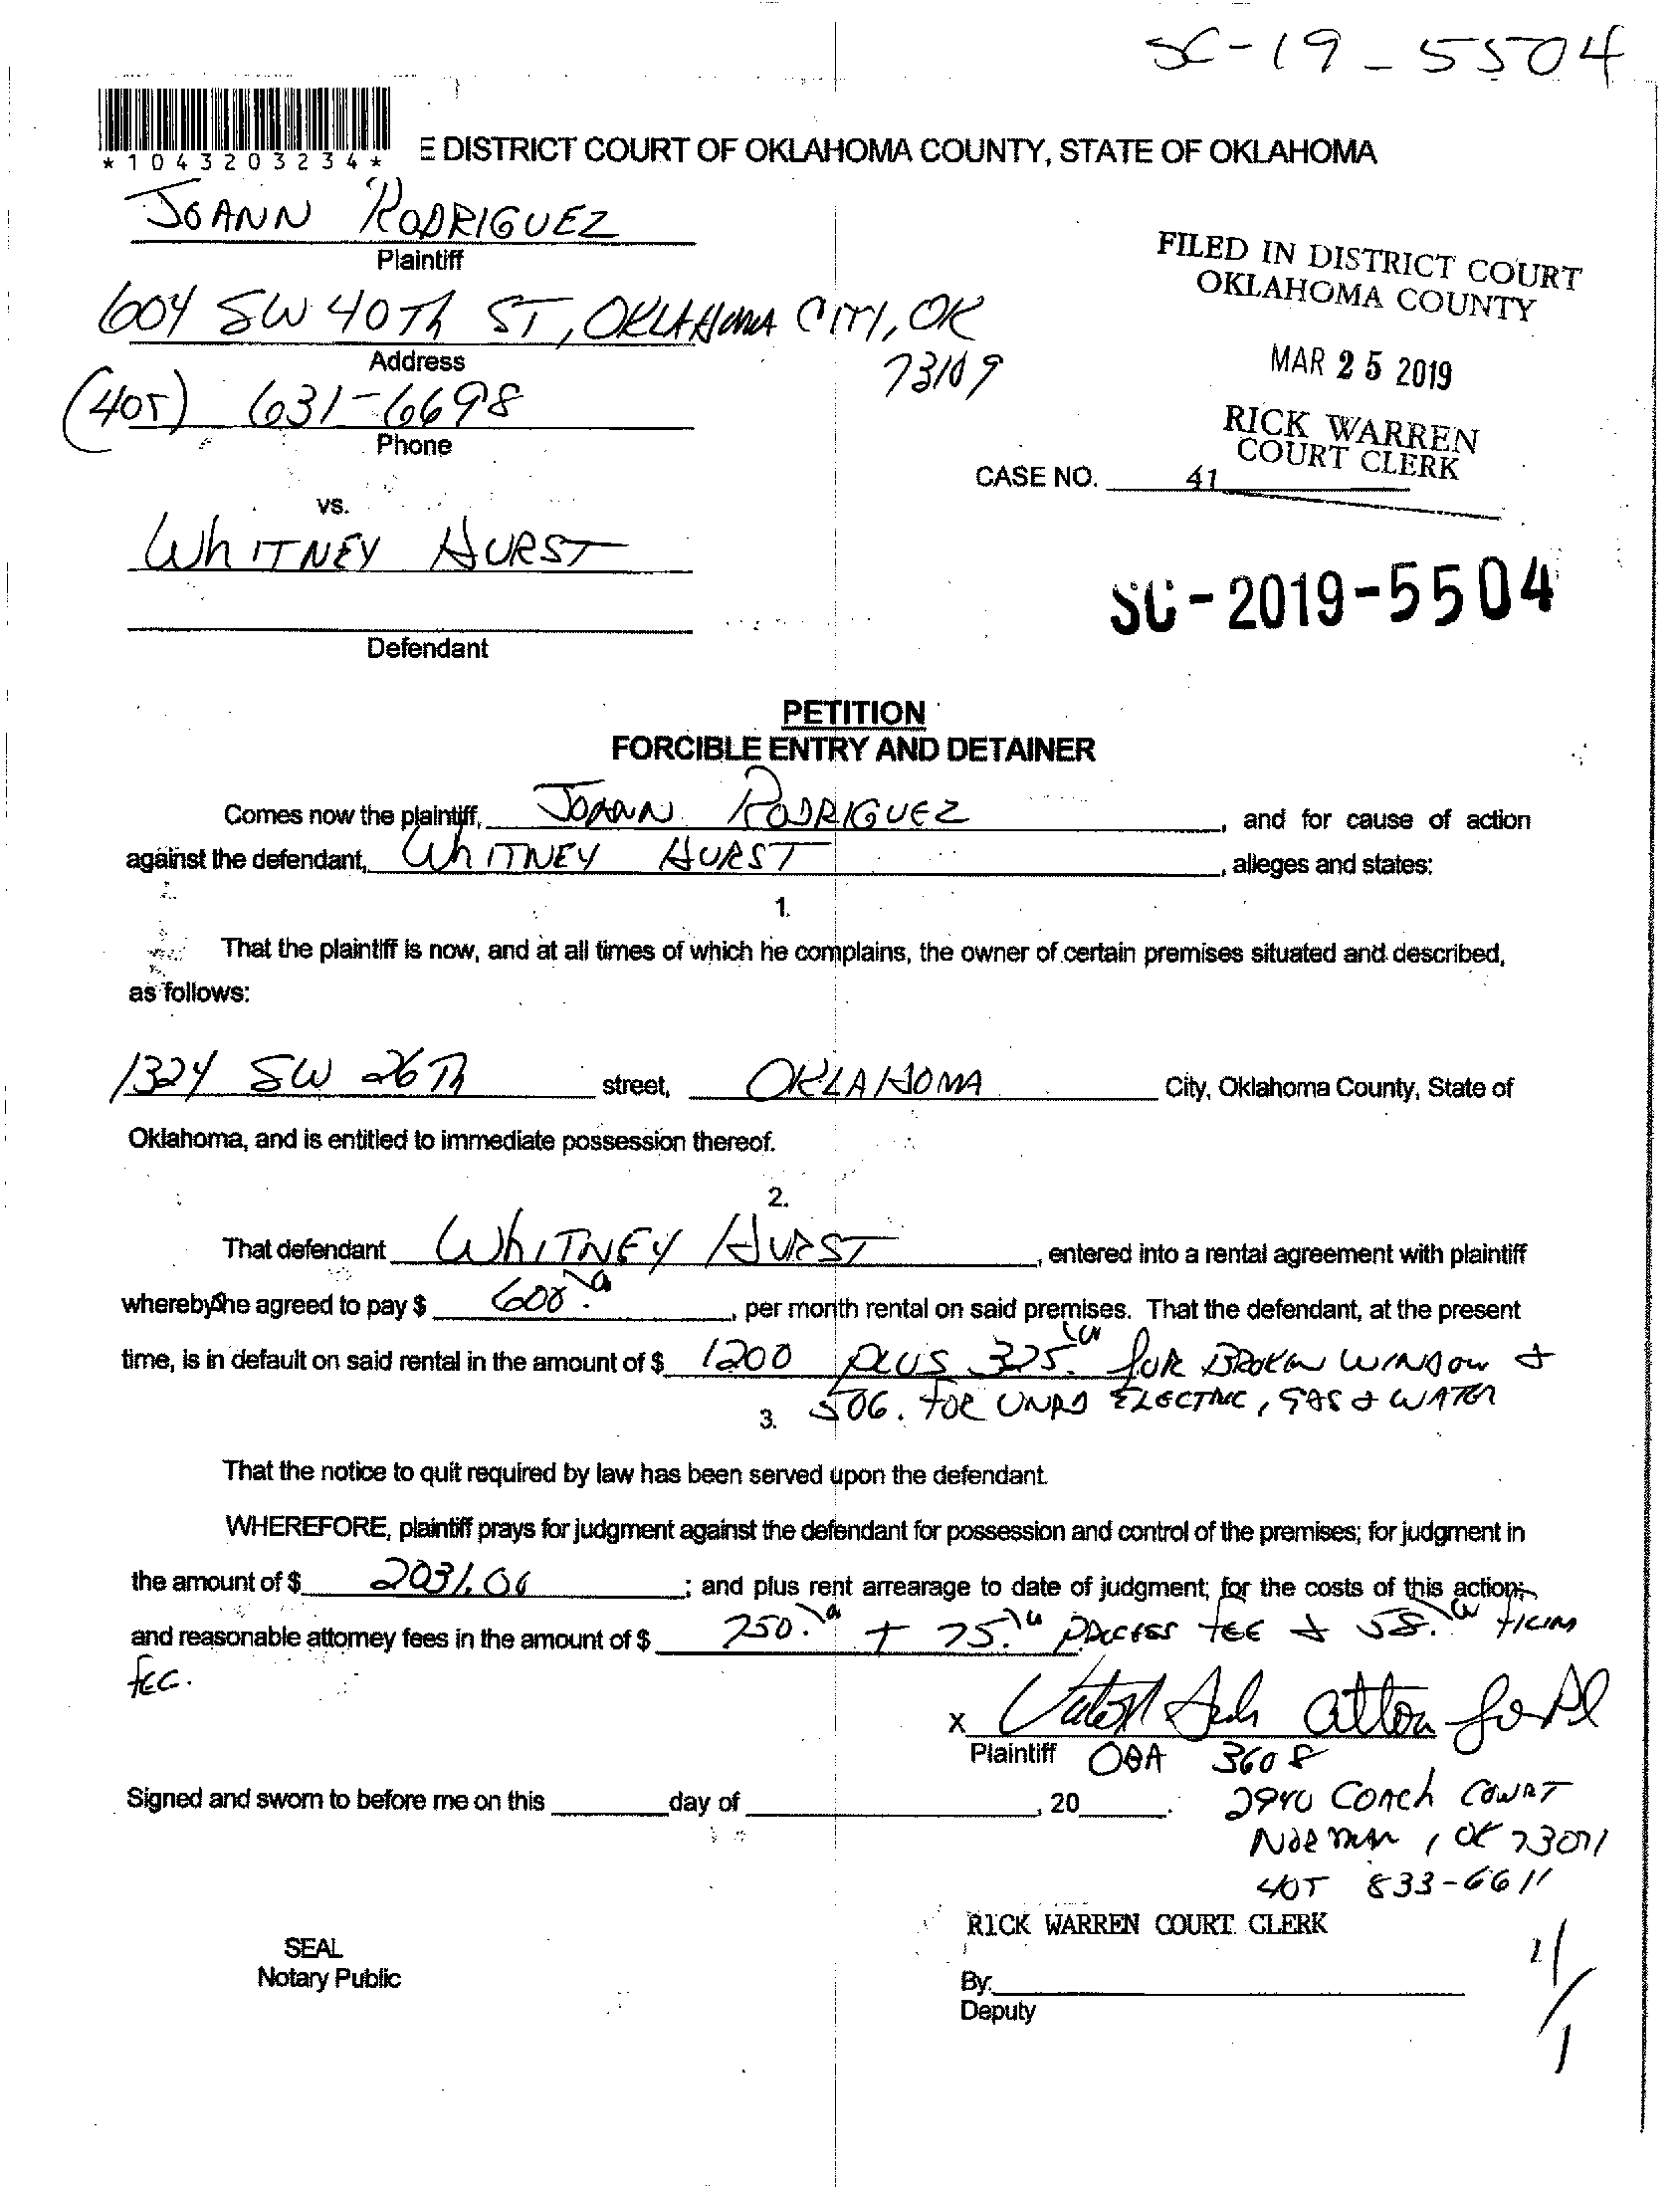 SC-19-5504
*1043203234*
E DISTRICT COURT OF OKLAHOMA COUNTY, STATE OF OKLAHOMA
JOANN RODRIGUEZ
Plaintiff
FILED IN DISTRICT COURT
OKLAHOMA COUNTY
604 SW 40Th ST, OKLAHOMA CITY, OK
73109
Address
MAR 25 2019
(405) 631-6698
Phone
RICK WARREN
COURT CLERK
CASE NO. 41
vs.
WhITNEY HURST
SC-2019-5504
Defendant
PETITION
FORCIBLE ENTRY AND DETAINER
Comes now the plaintiff, JOANN RODRIGUEZ, and for cause of action
against the defendant, WhITNEY HURST, alleges and states:
1.
That the plaintiff is now, and at all times of which he complains, the owner of certain premises situated and described,
as follows:
1324 SW 26Th street, OKLAHOMA City, Oklahoma County, State of
Oklahoma, and is entitled to immediate possession thereof.
2.
That defendant WhITNEY HURST, entered into a rental agreement with plaintiff
whereby she agreed to pay $ 600. , per month rental on said premises. That the defendant, at the present
time, is in default on said rental in the amount of $ 1200 PLUS 325. FOR BROKEN WINDOW &
506. FOR UNPD ELECTRIC, GAS & WATER
3.
That the notice to quit required by law has been served upon the defendant.
WHEREFORE, plaintiff prays for judgment against the defendant for possession and control of the premises; for judgment in
the amount of $ 2031.00 ; and plus rent arrearage to date of judgment; for the costs of this action;
and reasonable attorney fees in the amount of $ 750. + 75. PROCESS FEE & 58. FILING
FEE.
X atton for Pl
Plaintiff OBA 3608
Signed and sworn to before me on this day of , 20 .
2940 COACH COURT
NORMAN, OK 73071
405 833-6611
RICK WARREN COURT CLERK
SEAL
Notary Public
By:
Deputy